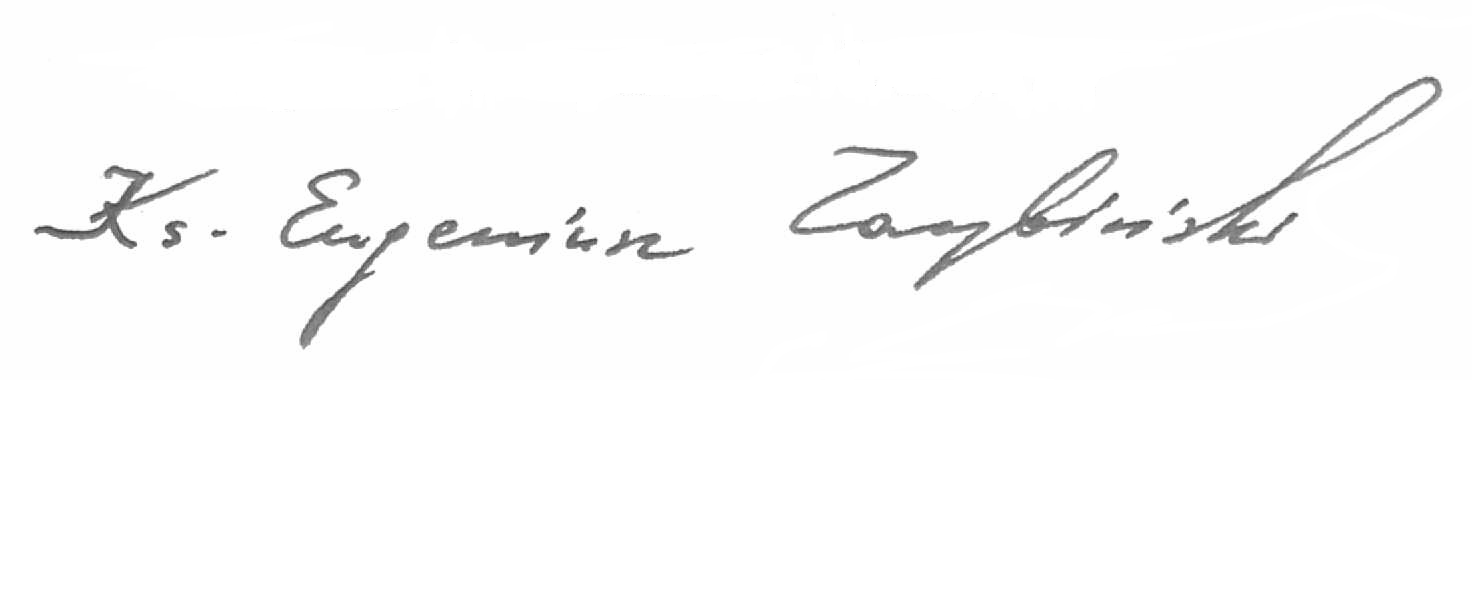 Ks. Eugeniusz Zarębiński